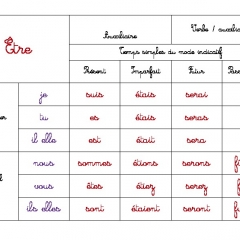 Auxiliaire Verbe / auxiliai
Être
Temps simples du mode indicatif
Présent Imparfait Futur
je suis étais serai
tu es étais seras
il elle est était sera
nous sommes étions serons
vous êtes étiez serez
ils elles sont étaient seront